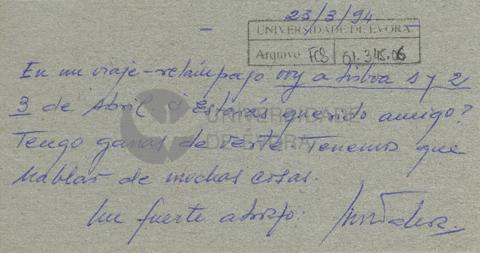 23/3/94
UNIVERSIDADE DE ÉVORA
Arquivo FCS 01.345.06
En un viaje-relámpago voy a Lisboa 1 y 2
3 de Abril ¿Estarás querido amigo?
Tengo ganas de verte Tenemos que
hablar de muchas cosas.
Un fuerte abrazo:
UNIVERSIDADE
DE ÉVORA